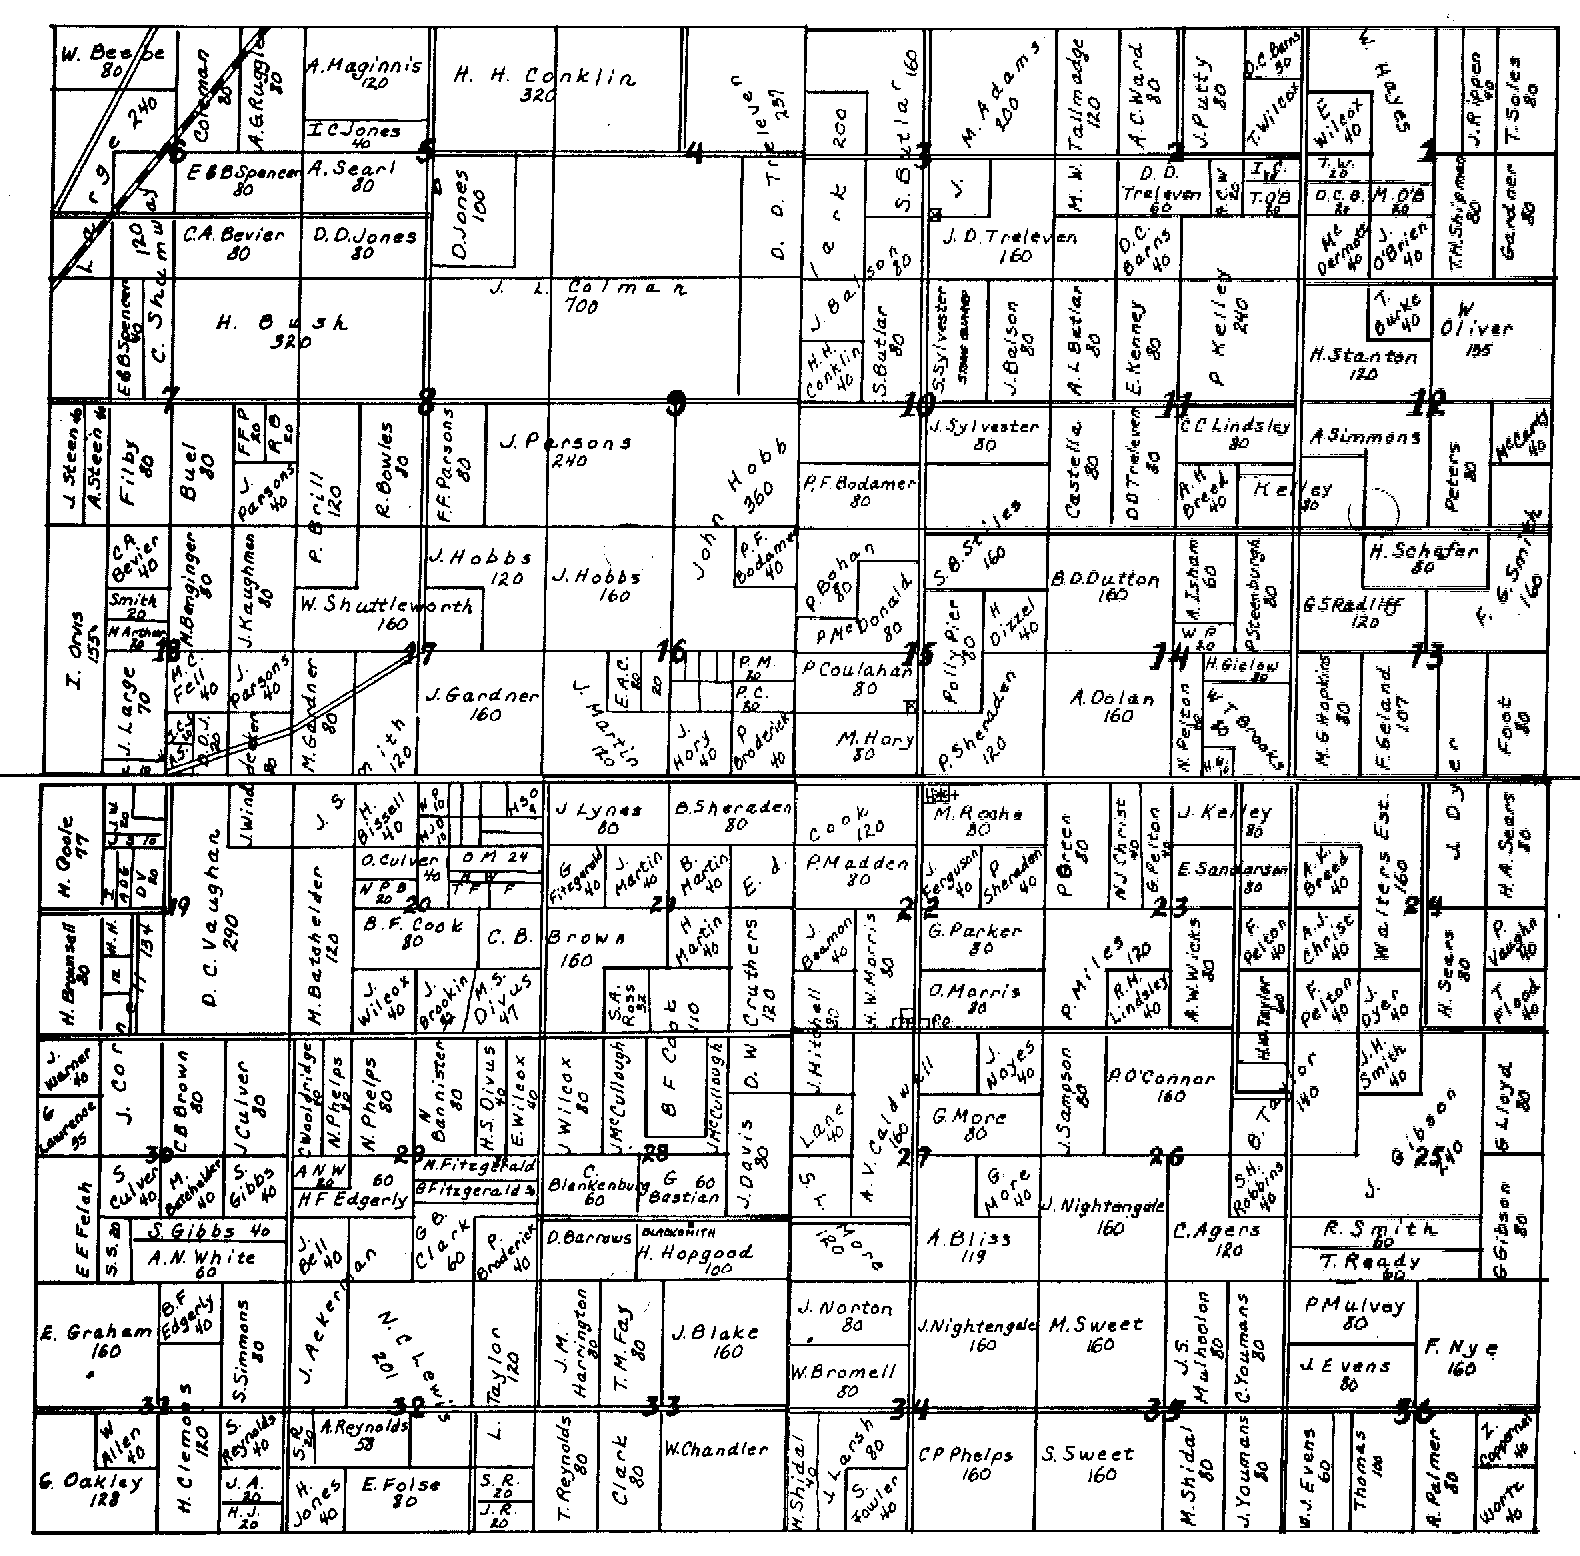 W. Beebe
80
Coleman
80
A.G. Ruggle
80
A. Maginnis
120
I C Jones
40
H. H. Conklin
320
D. D. Treleven
237
200
S. Butlar 160
M. Adams
200
M. W. Tallmadge
120
A.C. Ward
80
J. Putty
80
D.C. Barns
30
T. Wilcox
E. Wilcox
40
E. Hayes
J. Rippen
80
T. Soles
80
Large 240
6
5
4
3
2
1
E & B Spencer
80
A. Searl
80
D. Jones
100
J.
D. D.
Treleven
60
R C W
20
T. O'B
20
T. W.
20
D. C. B.
20
M O'B
20
T.H. Shipman
80
Gardner
80
C. Shumway
120
C.A. Bevier
80
D.D. Jones
80
J. L. Colman
700
Clark
J. D. Treleven
160
D.C.
Barns
40
P. Kelley
240
Mc
Dermott
40
J.
O'Brien
40
E & B Spencer
40
H. Bush
320
J. Balson
80
H. H.
Conklin
40
S. Butlar
80
S. Sylvester
J. Balson
80
A. L Butlar
80
E. Kenney
80
T.
Burke
40
W
Oliver
155
H. Stanton
120
7
8
9
10
11
12
J. Steen 40
A. Steen 40
Filby
80
Buel
80
F F P
20
R B
20
J.
Parsons
40
P. Brill
120
R. Bowles
80
F.F. Parsons
80
J. Parsons
240
John Hobb
360
J. Sylvester
80
P. F. Bodamer
80
Castella
80
D D Treleven
80
C C Lindsley
80
A. H
Breed
40
Kelley
80
A Simmons
Peters
80
McCarty
40
C A
Bevier
40
Smith
20
M Arthur
20
M. Benginger
80
J. Kaughman
80
W. Shuttleworth
160
J. Hobbs
120
J. Hobbs
160
P. F.
Bodamer
40
P. Bohan
80
P McDonald
80
S. B. Stiles
160
Polly Pier
80
H
Dizzel
40
B. D. Dutton
160
M. Isham
60
W P
20
P Steenburgh
80
H. Schafer
80
G S Radliff
120
F. G. Smith
160
18
17
16
15
14
13
I. Orvis
155
J. Large
70
M. C.
Fell
40
J.
Parsons
40
M. Gardner
80
Smith
120
J. Gardner
160
J. Martin
120
E. A. C.
80
20
P. M.
20
P. C.
20
J.
Hory
40
P
Broderick
40
P Coulahan
80
M. Hory
80
P. Sheraden
120
A. Dolan
160
N. Pelton
H. Gielow
80
Brooks
M. G Hopkins
80
F. Geland
107
J. Dyer
Foot
80
H. Poole
77
D. C. Vaughan
290
J. Windecker
80
J. S.
H.
Bissell
40
J Lynes
80
B. Sheraden
80
Cook
120
M. Roaha
80
P Green
80
N J Christ
40
G. Pelton
40
J. Kelley
80
Walters Est.
160
H. A. Sears
80
M. Batchelder
120
O. Culver
40
N P B
20
O M 24
G
Fitzgerald
40
J.
Martin
40
B.
Martin
40
Ed. Cruthers
120
P. Madden
80
J.
Ferguson
40
P
Sheraden
40
E. Sanderson
80
A. K.
Breed
40
19
20
21
22
23
24
H. Brownsell
80
B. F. Cook
80
C. B. Brown
160
H
Martin
40
J.
Beamon
40
H. W. Morris
80
G. Parker
80
P. Miles
120
A. W. Wicks
80
F.
Pelton
40
A. J.
Christ
40
H. Sears
80
P.
Vaughn
40
J.
Wilcox
40
J.
Brookin
32
M. S.
Divus
47
S. A.
Ross
52
B F Cook
110
J. Mitchell
80
O. Morris
80
R. H.
Lindsley
40
H. W. Taylor
F.
Pelton
40
J.
Dyer
40
T.
Flood
40
J.
Warner
40
G
Lawrence
55
C Brown
80
J Culver
80
C Wooldridge
80
N. Phelps
40
N. Phelps
80
N
Bannister
80
H. S. Divus
40
E. Wilcox
40
J Wilcox
80
J McCullough
80
J McCullough
D. W
J. Davis
80
S. Lane
40
A. V. Caldwell
160
J.
Noyes
40
G. More
80
J. Sampson
80
P. O'Connor
160
B. Taylor
140
J. H.
Smith
40
J. Gibson
240
G Lloyd
80
30
29
28
27
26
25
E E Felch
S.
Culver
40
M.
Batchelder
40
S.
Gibbs
40
A N W
20
60
H F Edgerly
M. Fitzgerald
B Fitzgerald
C.
Blankenburg
60
G 60
Bastian
G.
More
40
J. Nightengale
160
S. H.
Robbins
40
S. S. 20
S. Gibbs 40
A. N. White
60
J.
Bell
40
G B.
Clark
60
P.
Broderick
40
D. Barrows
BLACKSMITH
H. Hopgood
100
A. Bliss
119
C. Agers
120
R. Smith
60
T. Ready
60
G Gibson
80
E. Graham
160
B. F
Edgerly
40
S. Simmons
80
J. Ackerman
N. C Lewis
201
L. Taylor
120
J. M.
Harrington
80
T. M. Fay
80
J. Blake
160
J. Norton
80
W. Bromell
80
J. Nightengale
160
M. Sweet
160
J. S.
Mulhoolon
80
C. Youmans
80
P Mulvay
80
J. Evens
80
F. Nye
160
32
33
34
35
36
W
Allen
40
G. Oakley
128
H. Clemons
120
S.
Reynolds
40
J. A.
20
H. J.
20
S. R
20
A. Reynolds
58
H.
Jones
40
E. Folse
80
S. R.
20
J. R.
20
T. Reynolds
80
Clark
80
W. Chandler
M. Shidal
40
J. Larsh
80
S.
Fowler
40
C P Phelps
160
S. Sweet
160
M. Shidal
80
J. Youmans
80
W. J. Evens
60
Thomas
100
A. Palmer
80
Wortz
40